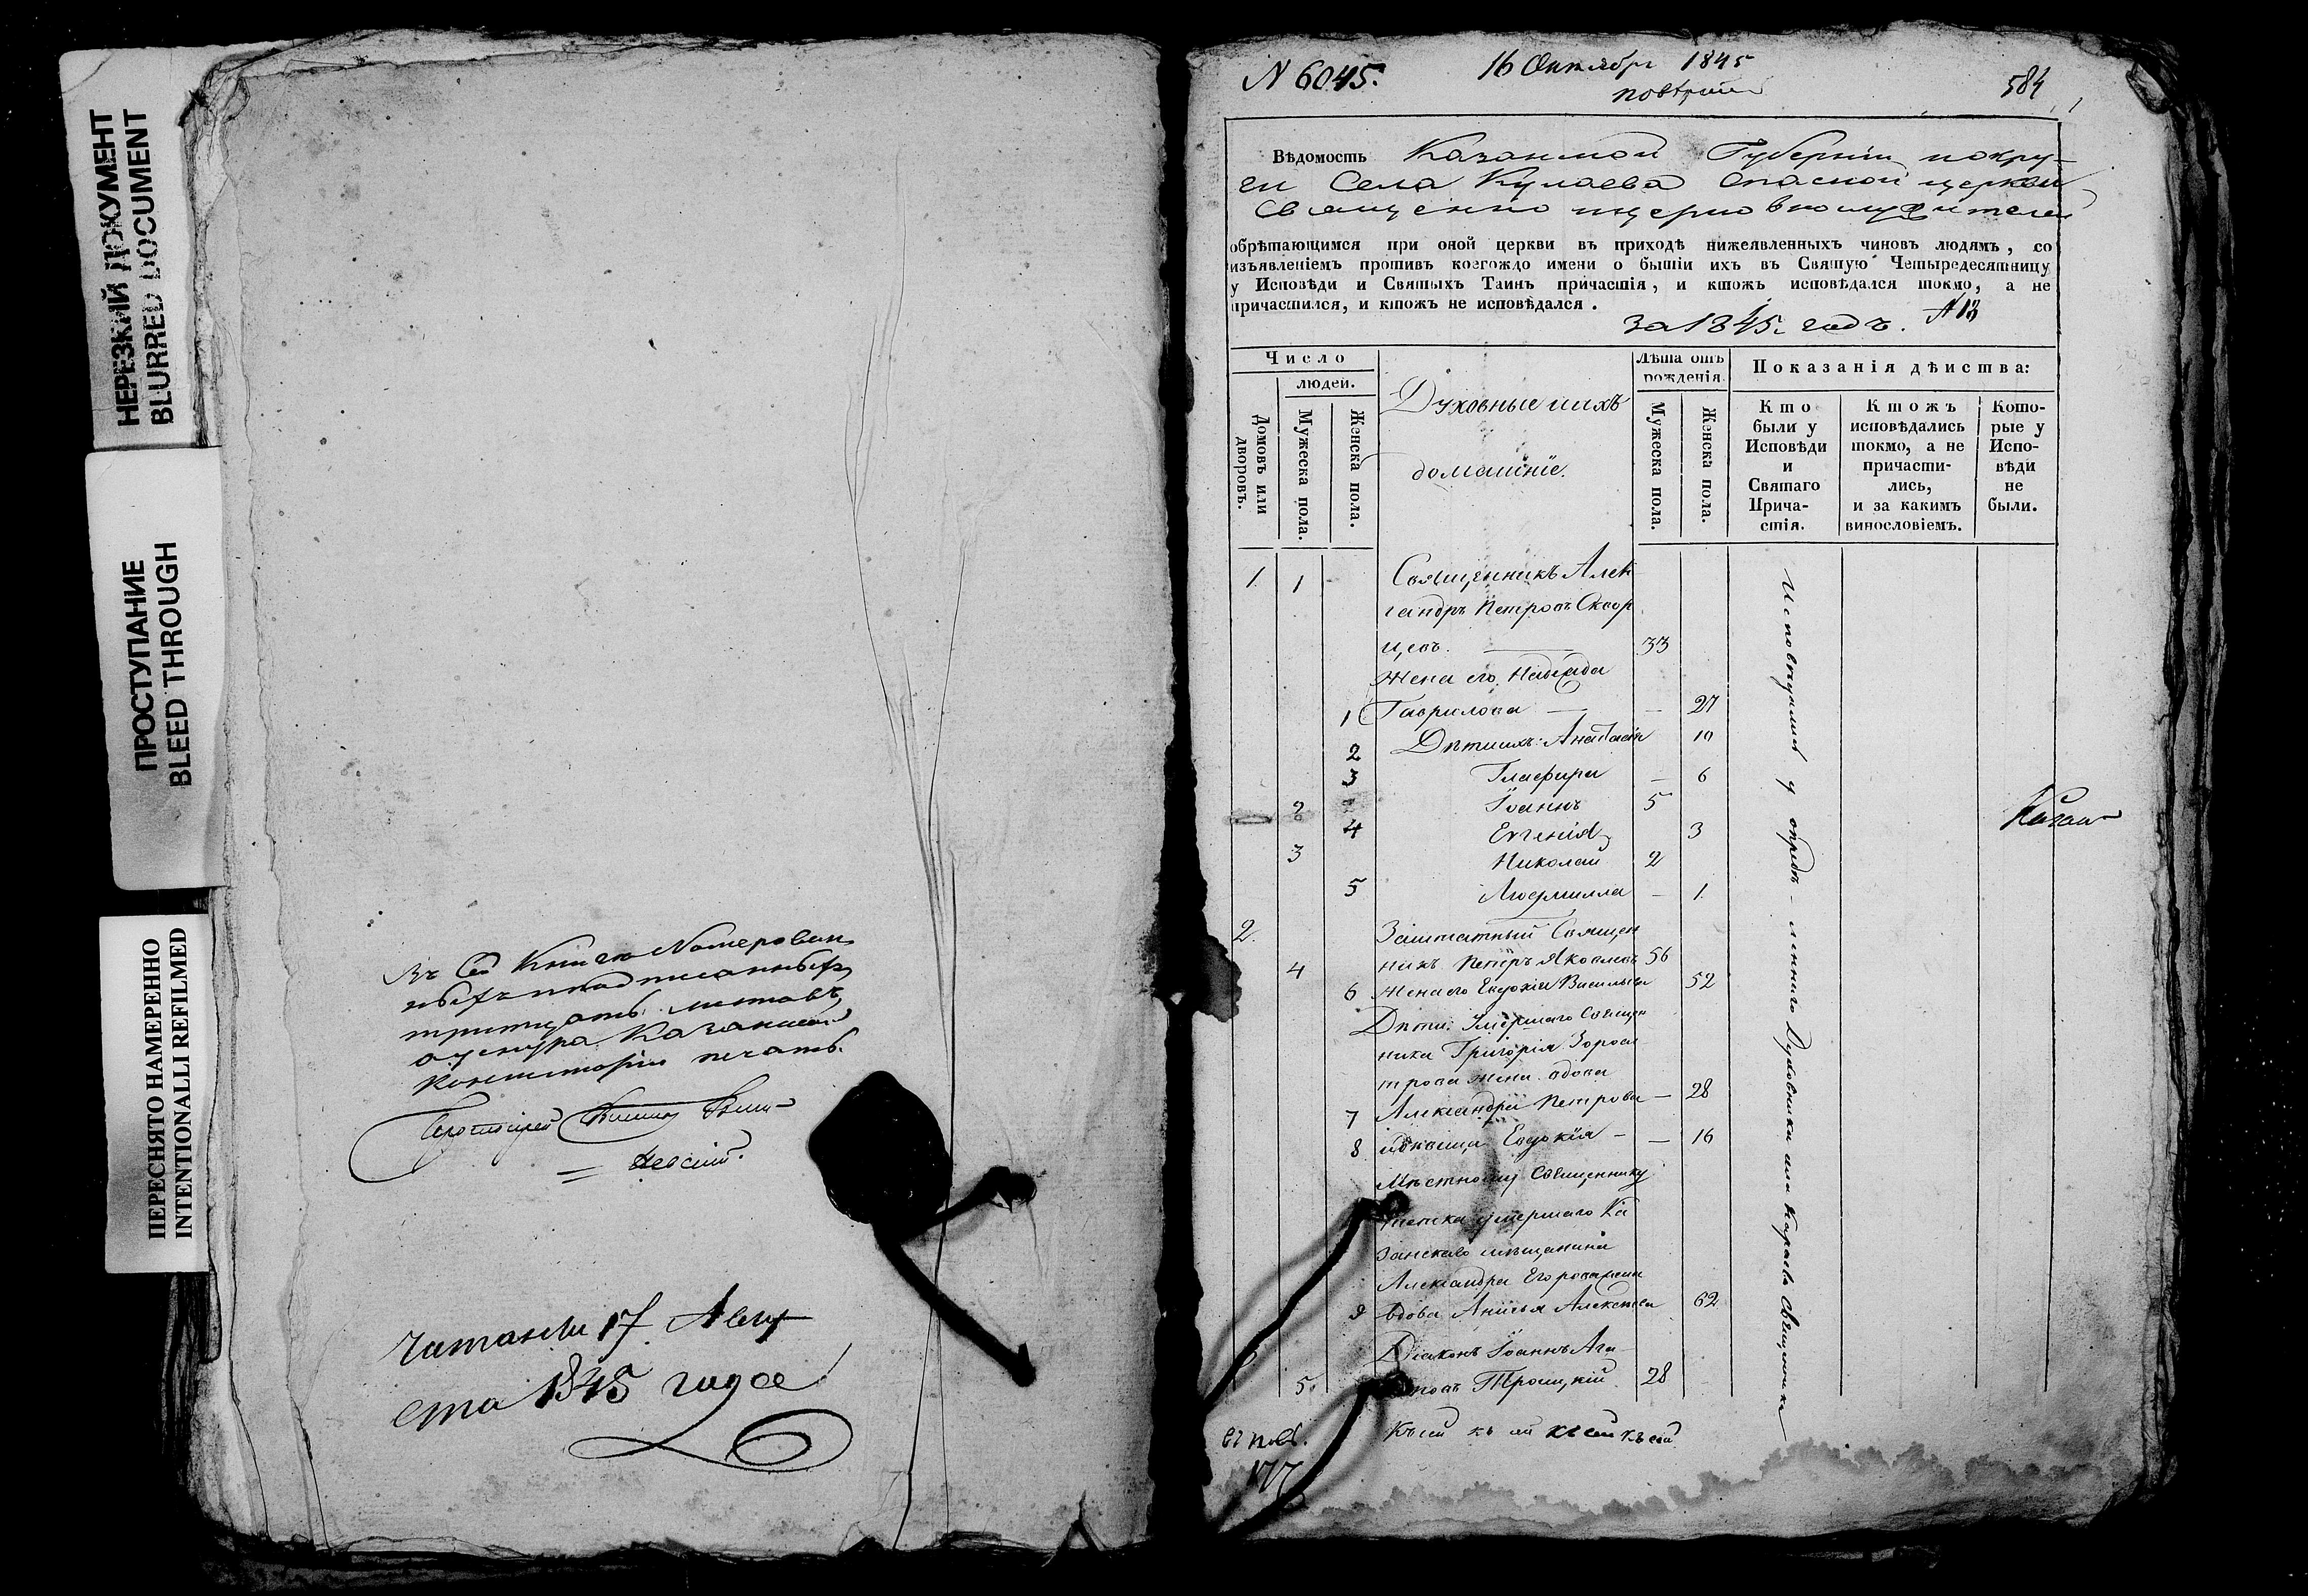 НЕРЕЗКИЙ ДОКУМЕНТ
BLURRED DOCUMENT
ПРОСТУПАНИЕ
BLEED THROUGH
ПЕРЕСНЯТО НАМЕРЕННО
INTENTIONALLI REFILMED
Въ сей Книгѣ Номерован
тритцать листовъ
печать
Протоіерей
Невскій.
читаны 17 Авгу
ста 1845 года
N 6045.
16 Октября 1845
584
Вѣдомость Казанской Губерніи и окру-
ги Села Кулаева Спаской церкви
Священно и церковнослужителей
обрѣтающимся при оной церкви въ приходѣ нижеявленныхъ чиновъ людямъ, со
изъявленіемъ противъ коегождо имени о бытіи ихъ въ Святую Четыредесятницу
у Исповѣди и Святыхъ Таинъ причастія, и ктожъ исповѣдался токмо, а не
причастился, и ктожъ не исповѣдался.
за 1845. годъ. N 13
Число
людей.
Домовъ или дворовъ.
Мужеска пола.
Женска пола.
Духовные и ихъ
домашніе.
Лѣта отъ
рожденія.
Мужеска пола.
Женска пола.
Показанія дѣйства:
Кто
были у
Исповѣди
и
Святаго
Прича-
стія.
Ктожъ
исповѣдались
токмо, а не
причасти-
лись,
и за какимъ
винословіемъ.
Кото-
рые у
Испо-
вѣди
не
были.
1. 1 Священникъ Алек
сандръ Петровъ Сквор
цевъ. 33
Жена его Надежда
1 Гаврилова — — 27
2 Дѣти ихъ: Анастасія 10
3 Глафира — 6
2 Іоаннъ 5
4 Евгенія 3
3 Николай 2
5 Людмилла — 1
2. Заштатный Священ
4 никъ Петръ Яковлевъ 56
6 Жена его Евдокія Васильева 52
Дѣти: Умершаго Священ
ника Григорія
жена вдова
7 Александра Петрова — 28
8 дѣвица Евдокія — — 16
Мѣстному Священнику
тетка умершаго Ка
занскаго мѣщанина
Александра Егорова жена
9 вдова Анисья Алексѣева 62
Діаконъ Іоаннъ Ага
5. повъ Троицкій 28
у Духовника села Священника
177